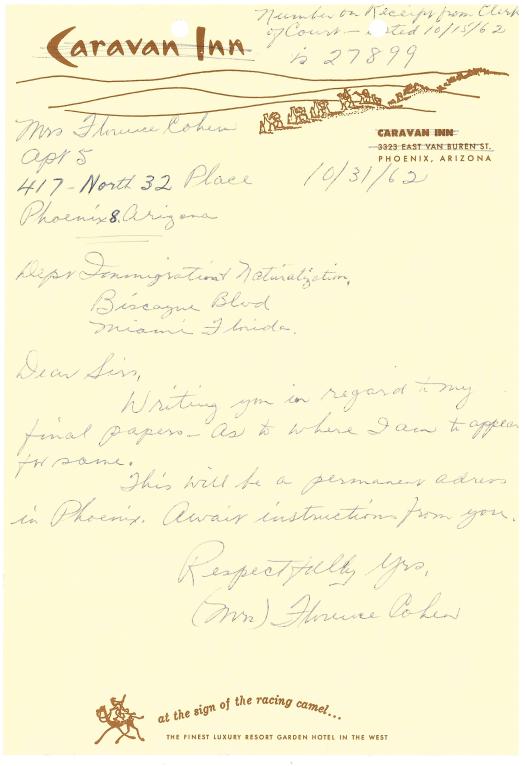 Number on Receipt from Clerk
of Court - dated 10/15/62
is 27899
Caravan Inn
CARAVAN INN
3323 EAST VAN BUREN ST.
PHOENIX, ARIZONA
Mrs Florence Cohen
Apt 5
417 - North 32 Place
10/31/62
Phoenix 8. Arizona
Dept Immigration & Naturalization,
Biscayne Blvd
Miami Florida.
Dear Sirs,
Writing you in regard to my
final papers - As to where I am to appear
for same.
This will be a permanent adress
in Phoenix. Await instructions from you.
Respectfully Yrs,
(Mrs) Florence Cohen
at the sign of the racing camel...
THE FINEST LUXURY RESORT GARDEN HOTEL IN THE WEST